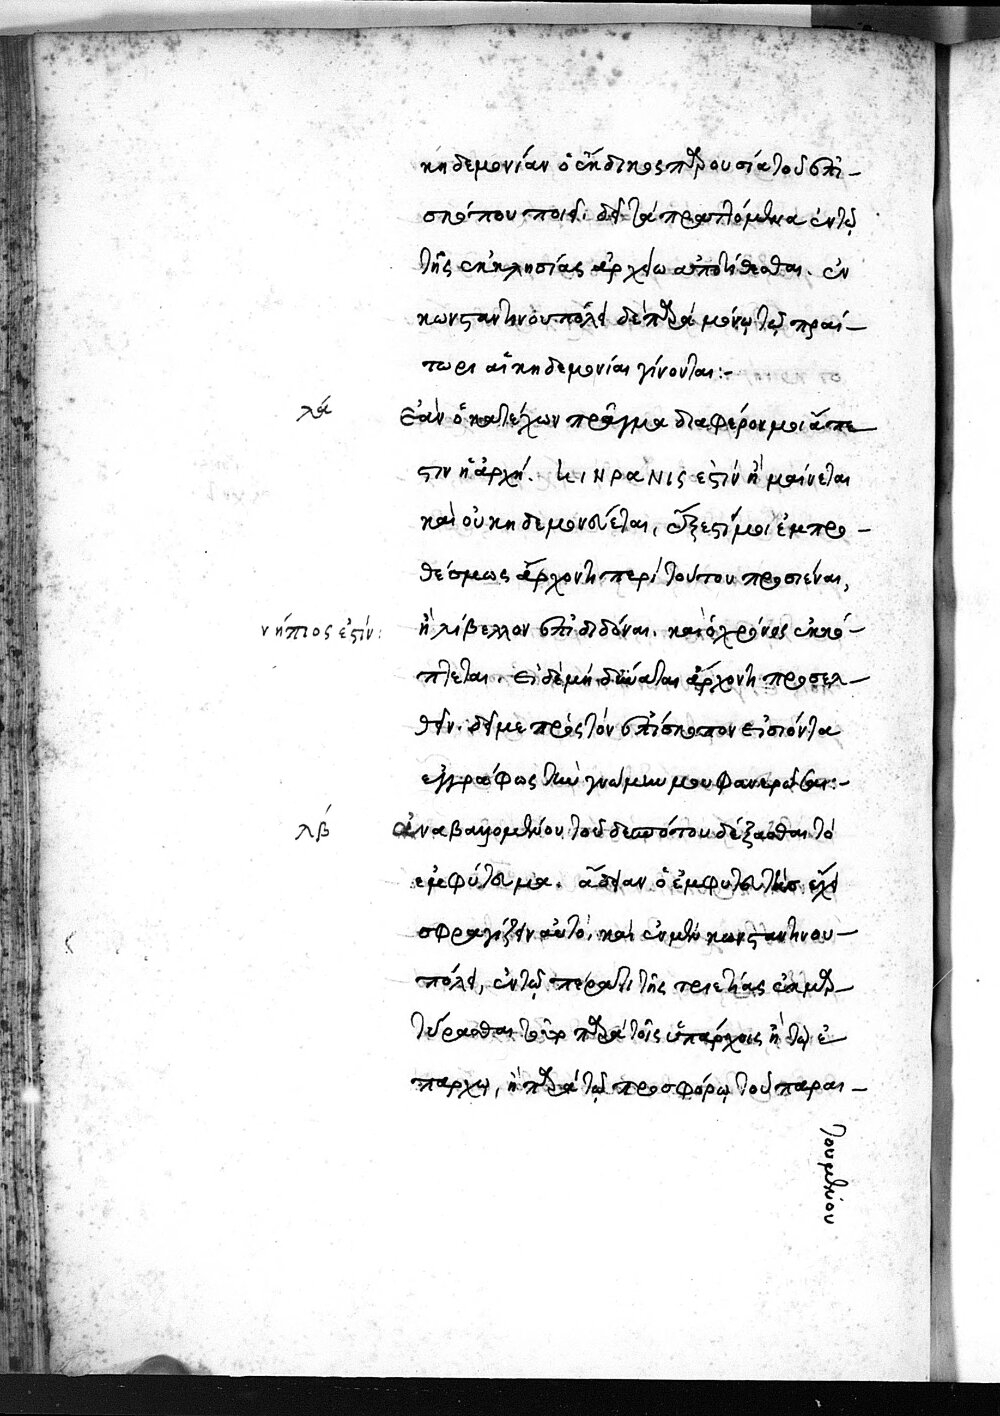 κηδεμονίαν ὁ ἔκδικος παρουσία τοῦ ἐπι-
σκόπου ποιεῖ. δεῖ τὰ πραττόμενα ἐν τῷ
τῆς ἐκκλησίας ἀρχείω ἀποτίθεσθαι. ἐν
κωνσταντινουπόλει δὲ παρὰ μόνω τῷ πραί-
τωρι αἱ κηδεμονίαι γίνονται:-
λα ἐὰν ὁ κατέχων πρᾶγμα διαφέρον μοι ἄπε
στιν ἢ ἀρχή. ἐστὶν ἢ μαίνεται
καὶ οὐ κηδεμονεύεται, ἔξεστί μοι ἐμπρο-
θέσμως ἄρχοντι περὶ τούτου προσιέναι,
νήπιος ἐστίν: ἢ λίβελλον ἐπιδιδόναι. καὶ ὁ χρόνος ἐκκό-
πτεται. εἰ δὲ μὴ δύναται ἄρχοντι προσελ-
θεῖν. δεῖ με πρὸς τὸν ἐπίσκοπον εἰσιόντα
ἐγγράφως τὴν γνώμην μου φανερῶσαι:-
λβ ἀναβαλλομένου τοῦ δεσπότου δέξασθαι τὸ
ἐμφύτευμα. ἄδειαν ὁ ἐμφυτευτὴς ἔχει
σφραγίζειν αὐτό. καὶ ἐν μὲν κωνσταντινου-
πόλει, ἐν τῷ πέρατι τῆς τριετίας ἐκμαρ-
τύρασθαι παρὰ τοῖς ὑπάρχοις ἢ τῷ ἐ
παρχω, ἢ παρὰ τῷ προσφόρω τοῦ παραι-
τουμένου